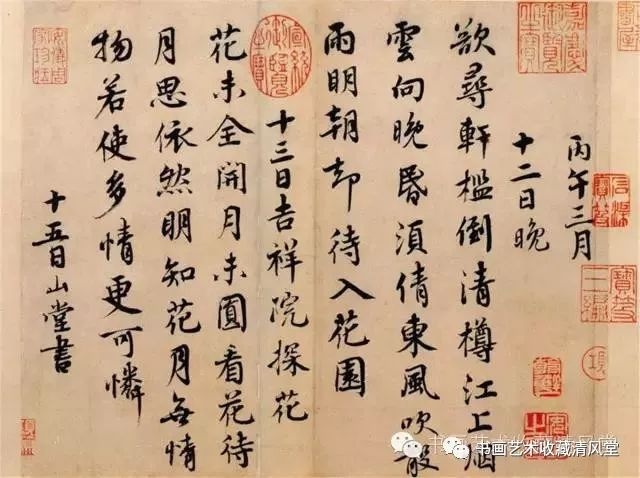 丙午三月
十二日晚
欲尋軒檻倒清樽江上烟
雲向晚昏須倩東風吹散
雨明朝却待入花園
十三日吉祥院探花
花未全開月未圓看花待
月思依然明知花月無情
物若使多情更可憐
十五日山堂書
书画艺术收藏清风堂